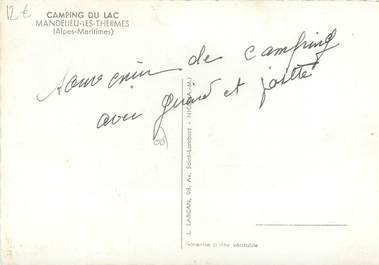 12 €
CAMPING DU LAC
MANDELIEU-LES-THERMES
(Alpes-Maritimes)
souvenir de camping
avec et
L. LARCAN, 98, Av. Saint-Lambert - NICE (A.-M.)
Garantie photo véritable